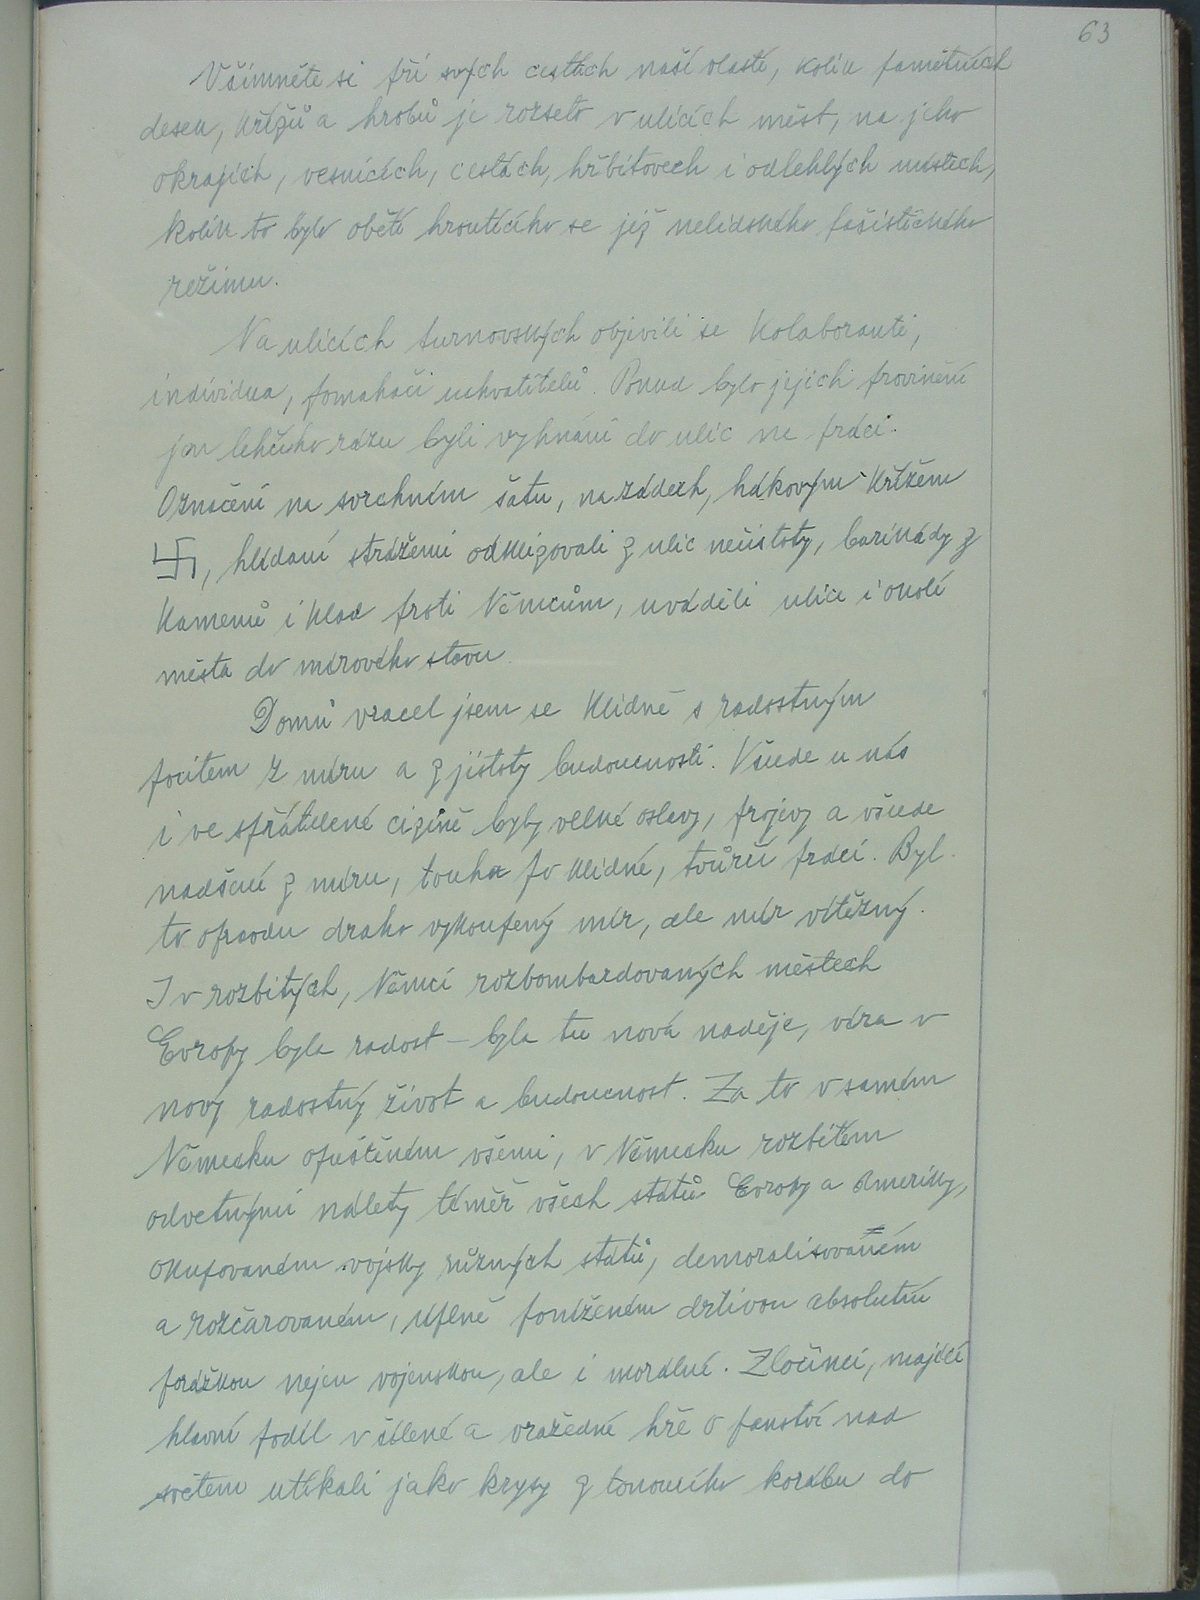 63
Všimněte si při svých cestách naší vlastí, kolik pamětních
desek, křížů a hrobů je rozseto v ulicích měst, na jeho
okrajích, vesnicích, cestách, hřbitovech i odlehlých místech,
kolik to bylo obětí hroutícího se již nelidského fašistického
režimu.
Na ulicích turnovských objevili se kolaboranti,
individua, pomahači uchvatitelů. Pokud bylo jejich provinění
jen lehčího rázu byli vyhnáni do ulic na práci.
Označeni na svrchním šatu, na zádech, hákovým křížem
卐, hlídáni strážemi odklizovali z ulic nečistoty, barikády z
kamenů i klad proti Němcům, uváděli ulice i okolí
města do mírového stavu.
Domů vracel jsem se klidně s radostným
pocitem z míru a z jistoty budoucnosti. Všude u nás
i ve spřátelené cizině byly velké oslavy, projevy a všude
nadšení z míru, touha po klidné, tvůrčí práci. Byl
to opravdu draho vykoupený mír, ale mír vítězný.
I v rozbitých, Němci rozbombardovaných městech
Evropy byla radost – byla tu nová naděje, víra v
nový radostný život a budoucnost. Za to v samém
Německu opuštěném všemi, v Německu rozbitém
odvetnými nálety téměř všech států Evropy a Ameriky,
okupovaném vojsky různých států, demoralisovaném
a rozčarovaném, úplně poníženém drtivou absolutní
porážkou nejen vojenskou, ale i morální. Zločinci, mající
hlavní podíl v šílené a vražedné hře o panství nad
světem utíkali jako krysy z tonoucího korábu do